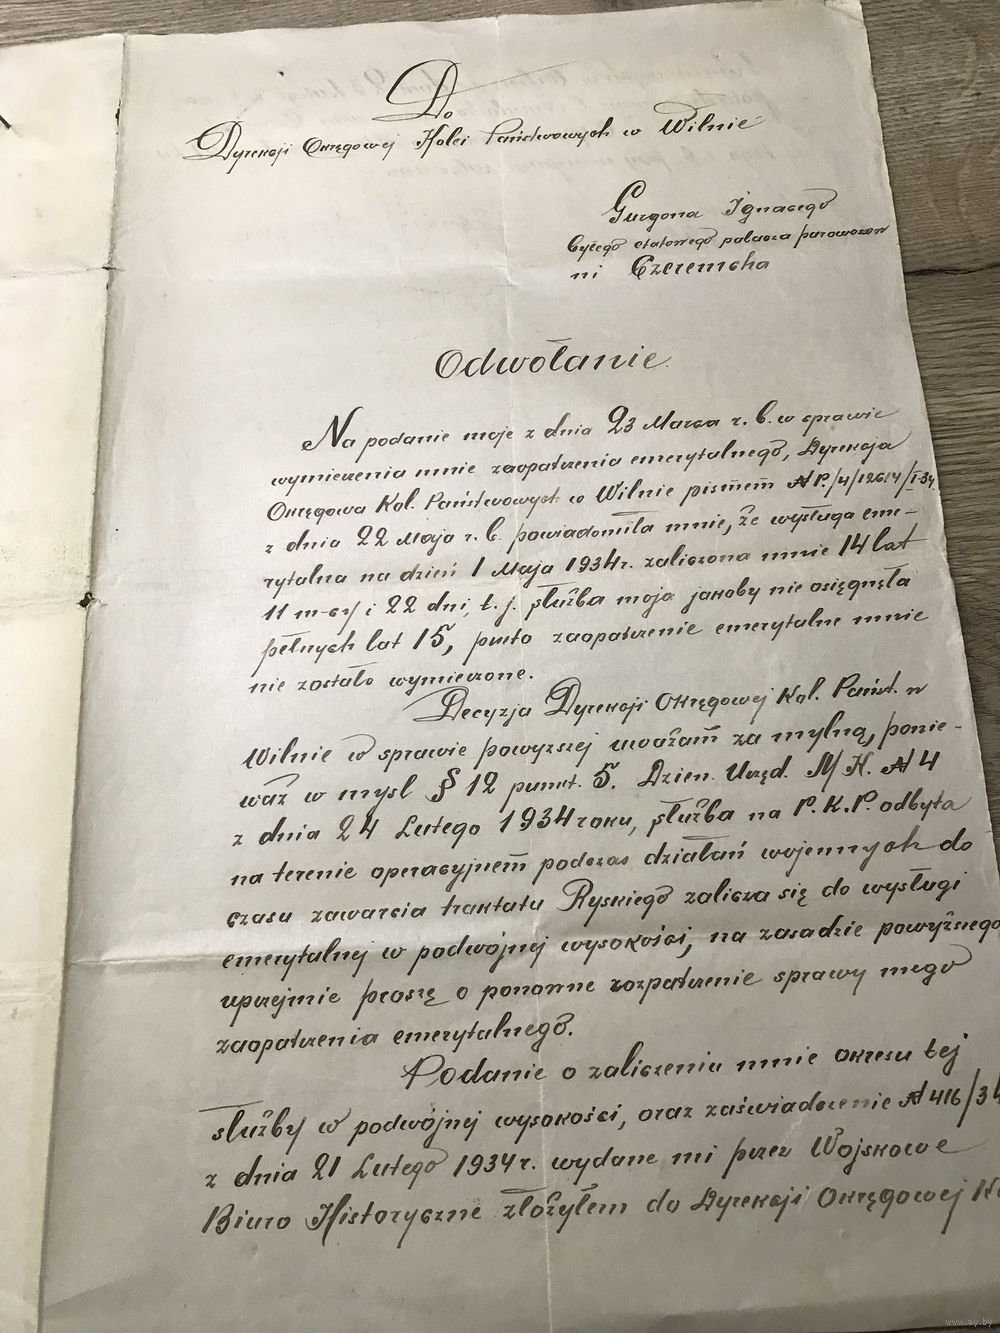 Do
Dyrekcji Okręgowej Kolei Państwowych w Wilnie
Gurgona Ignacego
byłego etatowego palacza parowozow
ni Czeremcha
Odwołanie.
Na podanie moje z dnia 23 Marca r. b. w sprawie
wymierzenia mnie zaopatrzenia emerytalnego, Dyrekcja
Okręgowa Kol. Państwowych w Wilnie pismem № P./4/12614/I-34
z dnia 22 Maja r. b. powiadomiła mnie, że wysługa eme-
rytalna na dzień 1 Maja 1934 r. zaliczona mnie 14 lat
11 m-cy i 22 dni, t. j. służba moja jakoby nie osięgnęła
pełnych lat 15, prieto zaopatrzenie emerytalne mnie
nie zostało wymierzone.
Decyzja Dyrekcji Okręgowej Kol. Państ. w
Wilnie w sprawie powyższej uważam za mylną, ponie-
waż w mysl § 12 punkt. 5. Dzien. Urzęd. M. K. № 4
z dnia 24 Lutego 1934 roku, służba na P. K. P. odbyta
na terenie operacyjnem podczas działań wojennych do
czasu zawarcia traktatu Ryskiego zalicza się do wysługi
emerytalnej w podwójnej wysokości, na zasadzie powyższego
uprzejmie proszę o ponowne rozpatrzenie sprawy mego
zaopatrzenia emerytalnego.
Podanie o zaliczeniu mnie okresu tej
służby w podwójnej wysokości, oraz zaświadczenie № 416/34
z dnia 21 Lutego 1934 r. wydane mi przez Wojskowe
Biuro Historyczne złożyłem do Dyrekcji Okręgowej
www.ay.by